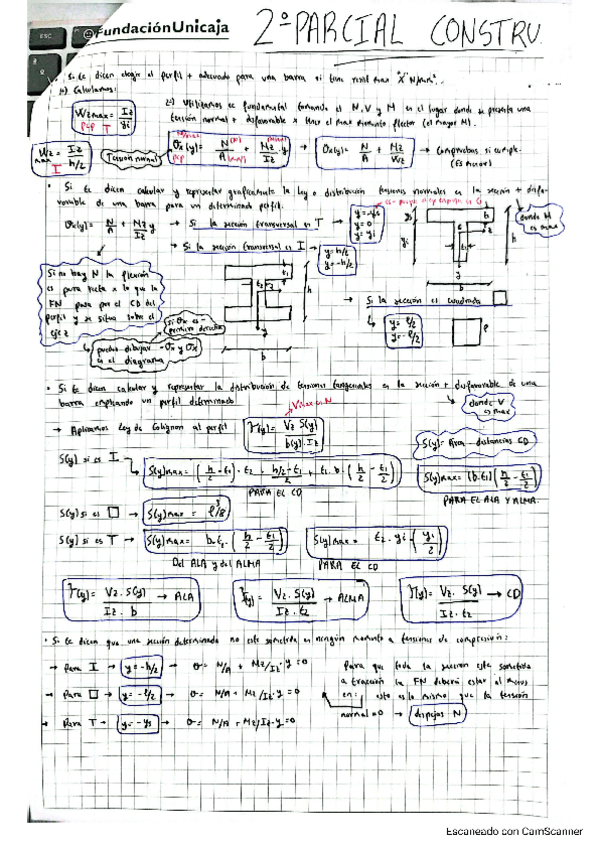 ESC
FundaciónUnicaja
2º PARCIAL CONSTRU.
· Si te dicen elegir el perfil + adecuado para una barra si tiene resil max "X" N/mm².
1) Calculamos:
Wz max = Iz / yi
2) Utilizamos ec fundamental tomando el N, V y M en el lugar donde se presenta una
tensión normal + desfavorable x tener el max momento flector (el mayor M).
Wz max = Iz / h/2
Tensión normal
σx(y) = N/A + Mz/Iz · y → σx(y) = N/A + Mz/Wz → Comprobar si cumple.
· Si te dicen calcular y representar gráficamente la ley o distribución tensiones normales en la sección + desfa-
vorable de una barra para un determinado perfil.
σx(y) = N/A + Mz/Iz y → Si la sección transversal es T → y = -ys
y = 0
y = yi
donde M es max
→ Si la sección transversal es I → y = h/2
y = -h/2
Si no hay N la flexión
es pura recta x lo que la
FN pasa por el CD del
perfil y se sitúa sobre el
eje z
→ Si la sección es cuadrada □
y = l/2
y = -l/2
puedes dibujar -σx y σx
en el diagrama
· Si te dicen calcular y representar la distribución de tensiones tangenciales en la sección + desfavorable de una
barra empleando un perfil determinado
donde V es max
→ Aplicamos Ley de Colignon al perfil
τ(y) = Vz S(y) / b(y) · Iz
S(y) = Área · distancias CD
S(y) si es I → S(y)max = (h/2 - t1) · t2 · h/2-t1 / 2 + t1 · b · (h/2 - t1/2)
PARA EL CD
S(y)max = (b·t1)(h/2 - t1/2)
PARA EL ALA Y ALMA.
S(y) si es □ → S(y)max = l³/8
S(y) si es T → S(y)max = b·t1 · (h/2 - t1/2)
Del ALA y del ALMA
S(y)max = t2 · yi · (yi/2)
PARA EL CD
τ(y) = Vz · S(y) / Iz · b → ALA
τ(y) = Vz · S(y) / Iz · t2 → ALMA
τ(y) = Vz · S(y) / Iz · t2 → CD
· Si te dicen que una sección determinada no esté sometida en ningún momento a tensiones de compresión:
→ Para I → y = -h/2 → σ = N/A + Mz/Iz · y = 0
→ Para □ → y = -l/2 → σ = N/A + Mz/Iz · y = 0
→ Para T → y = -ys → σ = N/A + Mz/Iz · y = 0
Para que toda la sección esté sometida
a tracción la FN deberá estar al menos
en: esto es lo mismo que la tensión
normal = 0 → despejas N
Escaneado con CamScanner